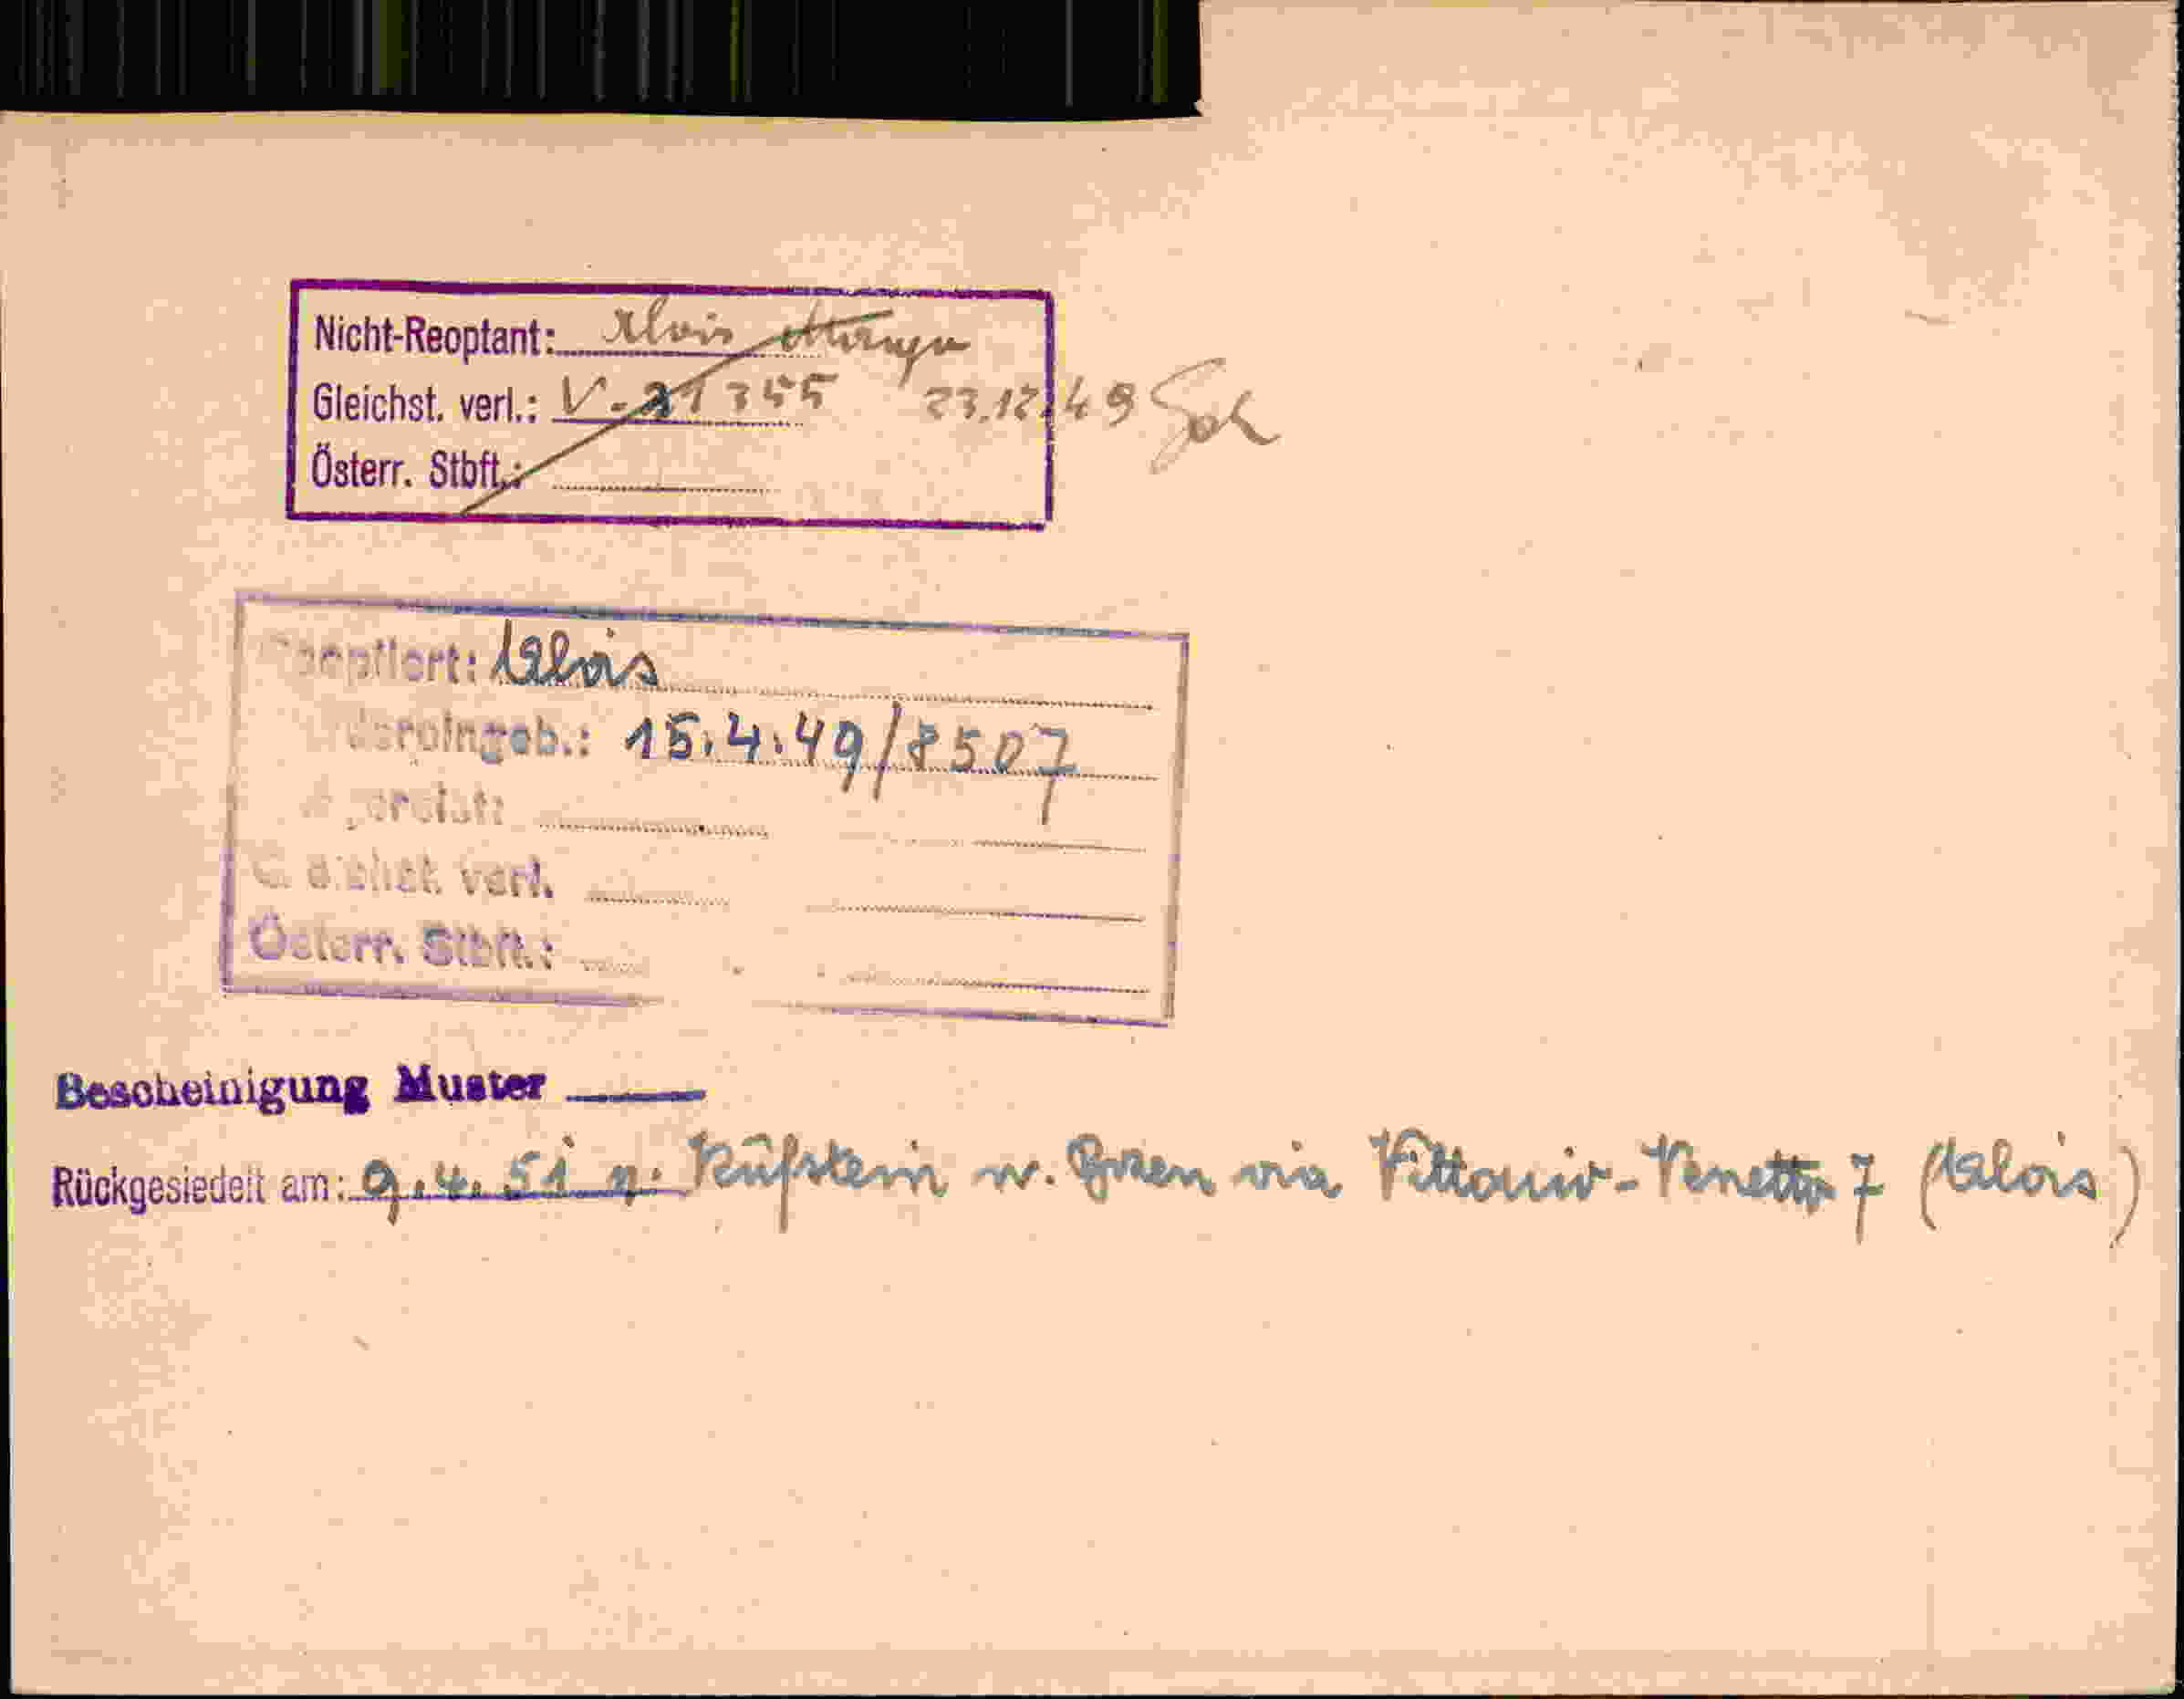 Nicht-Reoptant: Alois
Gleichst. verl.: V-21355 23.12.49
Österr. Stbft.:
Reoptiert: Alois
15.4.49/8507
verl.
Österr. Stbft.:
Bescheinigung Muster
Rückgesiedelt am: 9.4.51 v. Kufstein n. Bozen via Vittorio-Venetto 7 (Alois)